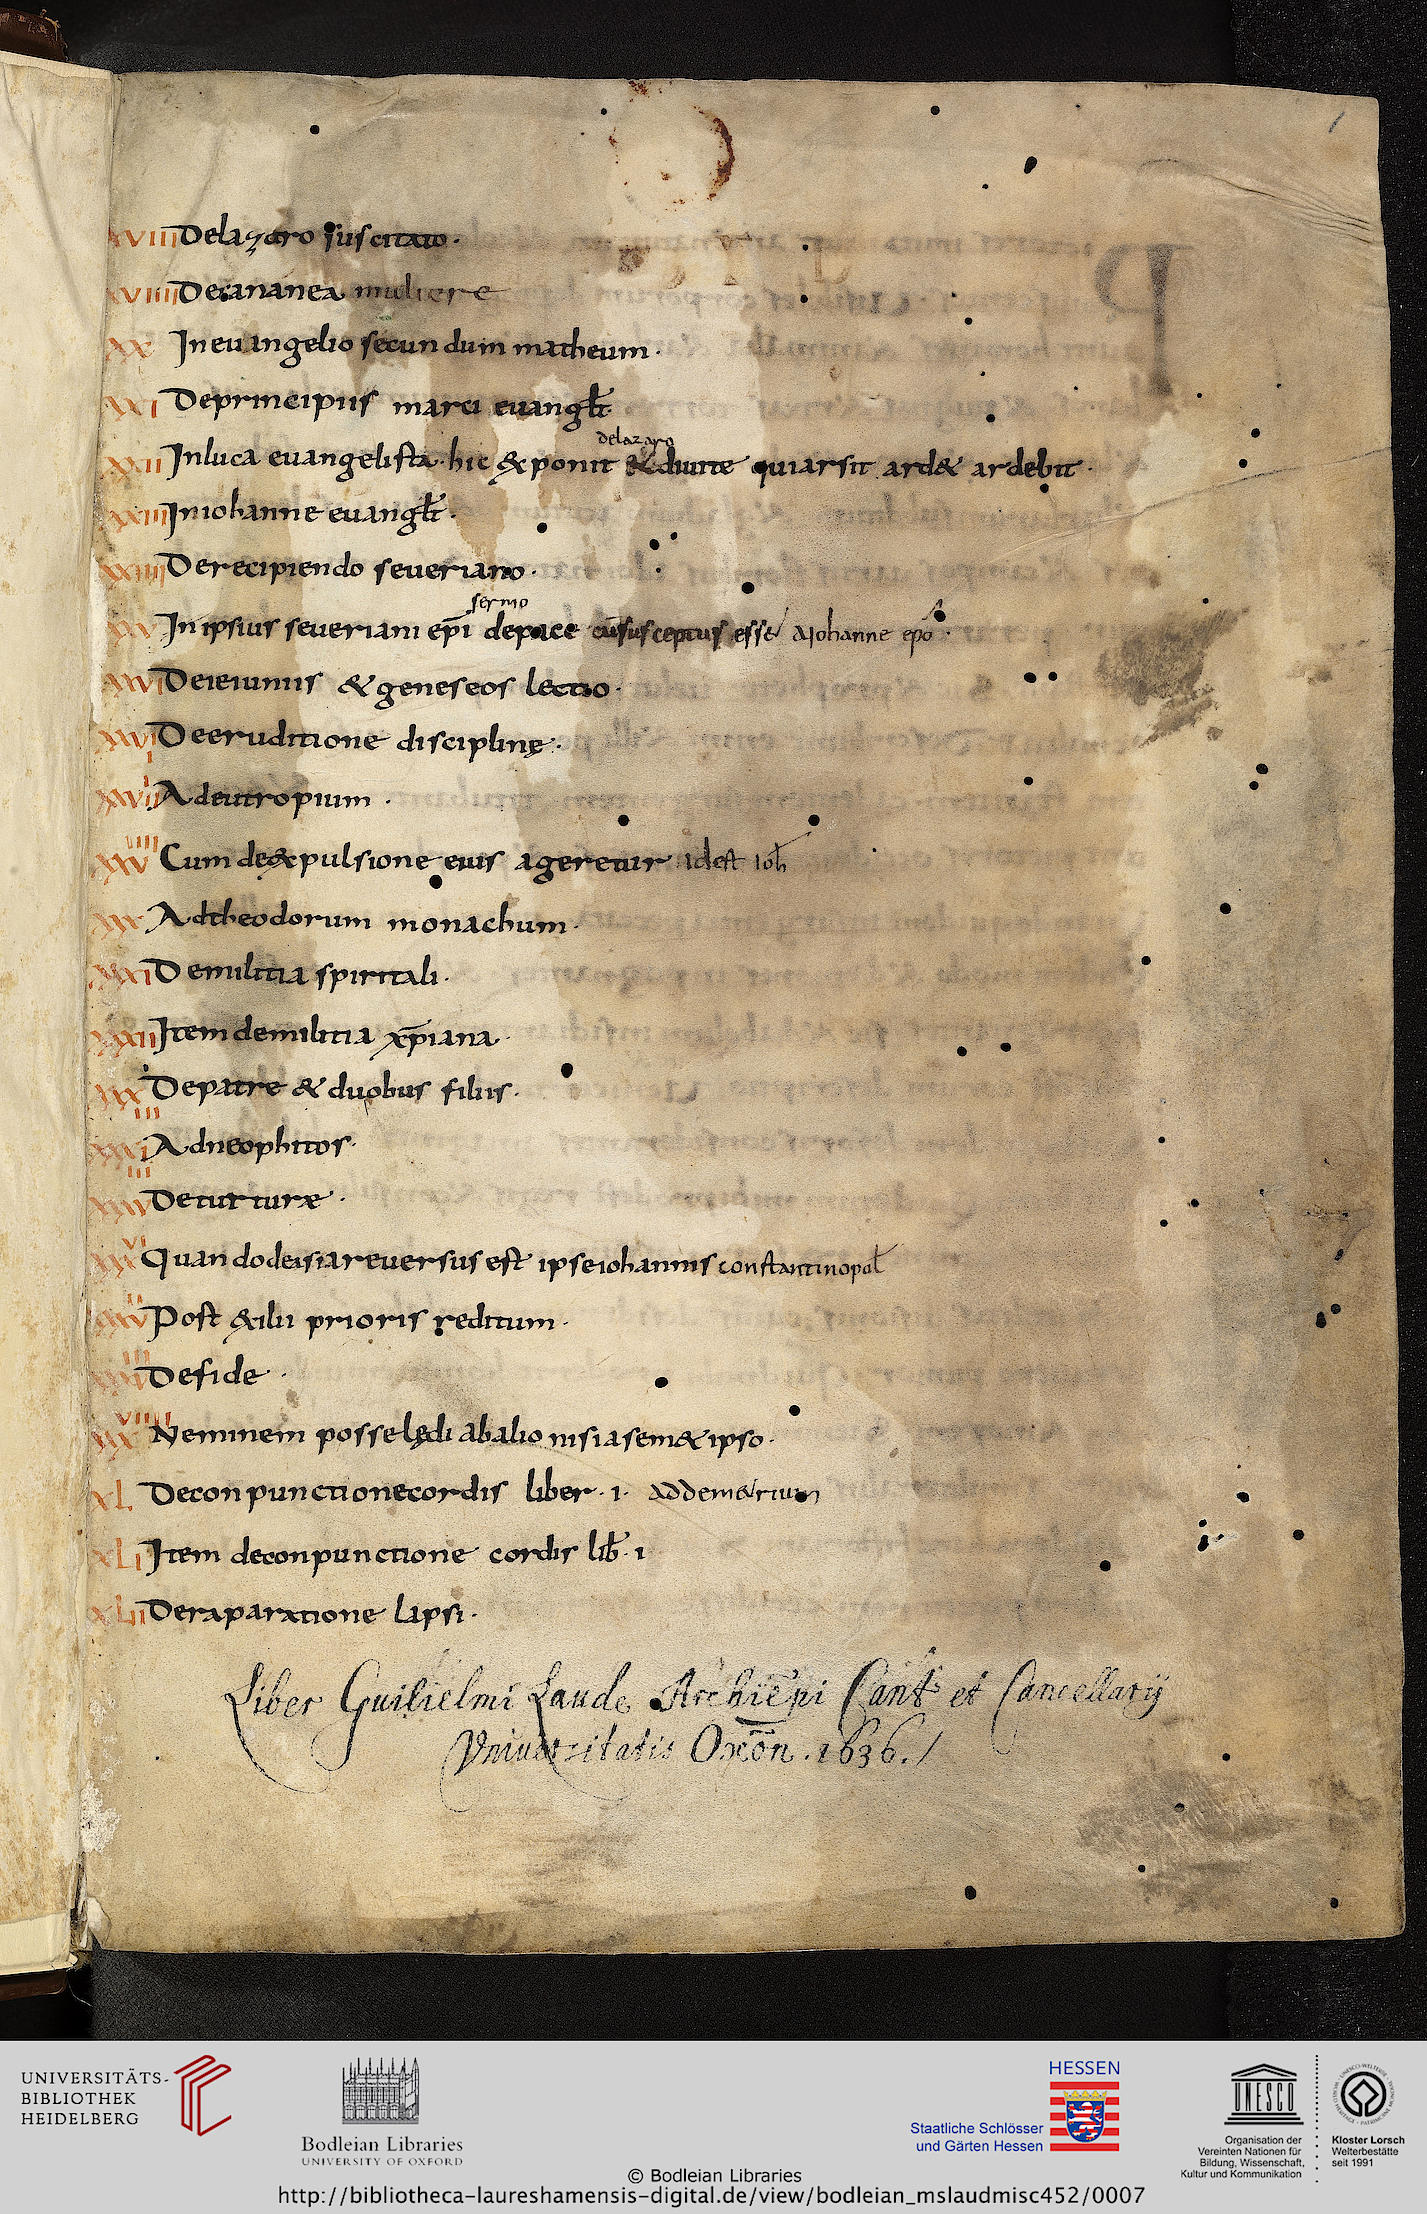 1
XVIII De lazaro suscitato.
XVIIII De cananea muliere
XX In euangelio secundum matheum.
XXI De principiis marci euanglt.
delazaro
XXII In luca euangelista. hic &ponit & diuite qui arsit ard& ardebit.
XXIII In iohanne euanglt.
XXIIII De recipiendo seueriano.
sermo
XXV In ipsius seueriani epī de pace cū susceptus esset a Iohanne epō.
XXVI De ieiuniis & geneseos lectio.
XXVII De eruditione disciplinę.
XXVIII Ad eutropium.
XXVIIII Cum de &pulsione eius ageretur idest Ioh
XXX Ad theodorum monachum.
XXXI De militia spiritali.
XXXII Item de militia xp̄iana.
XXXIII De patre & duobus filiis.
XXXIIII Ad neophitos.
XXXV De turture.
XXXVI Quando de asia reuersus est ipse iohannis constantinopol
XXXVII Post &ilii prioris reditum.
XXXVIII De fide.
XXXVIIII Neminem posse lędi ab alio nisi a sem&ipso.
XL De conpunctione cordis liber. I. Ad dem&rium
XLI Item de conpunctione cordis lib. I
XLII De raparatione lapsi.
Liber Guilielmi Laude Archiēpi Cant: et Cancellarij
Vniuersitatis Oxōn. 1636. /
UNIVERSITÄTS-
BIBLIOTHEK
HEIDELBERG
Bodleian Libraries
UNIVERSITY OF OXFORD
HESSEN
Staatliche Schlösser
und Gärten Hessen
UNESCO
Organisation der
Vereinten Nationen für
Bildung, Wissenschaft,
Kultur und Kommunikation
Kloster Lorsch
Welterbestätte
seit 1991
© Bodleian Libraries
http://bibliotheca-laureshamensis-digital.de/view/bodleian_mslaudmisc452/0007